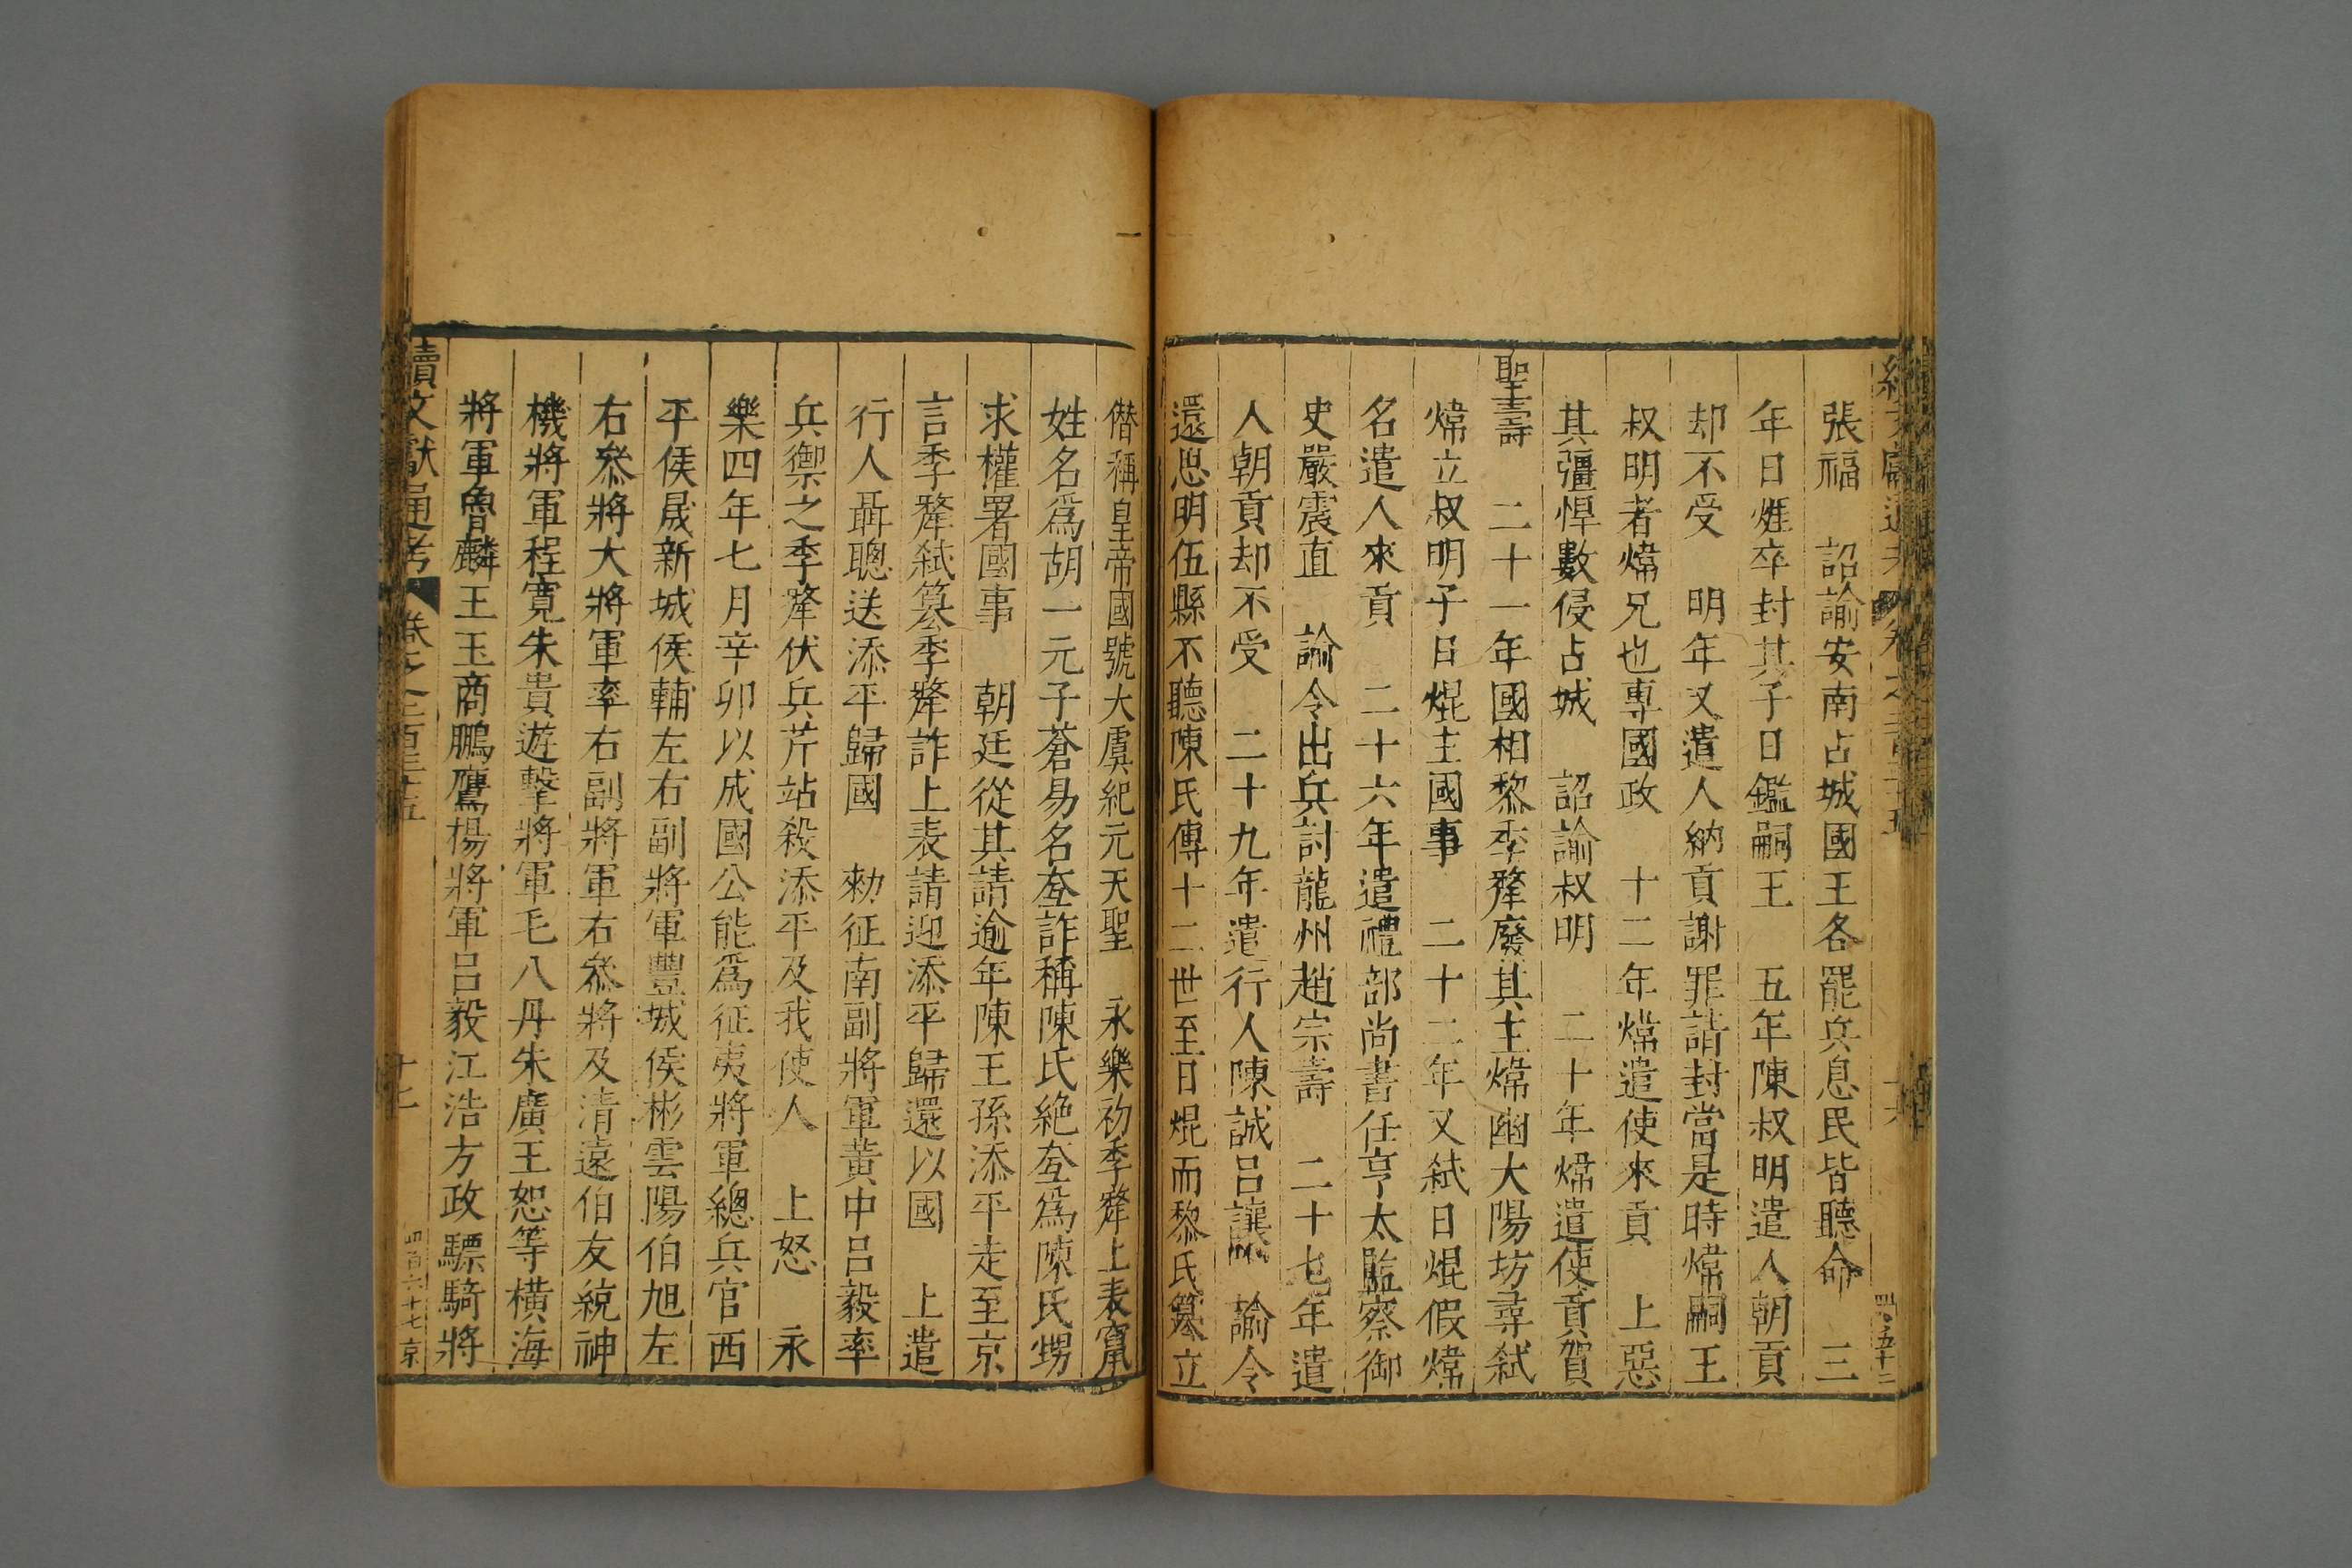 張福　詔諭安南占城國王各罷兵息民皆聽命　三
年日熞卒封其子日鑑嗣王　五年陳叔明遣人朝貢
却不受　明年又遣人納貢謝罪請封當是時煒嗣王
叔明者煒兄也專國政　十二年煒遣使來貢　上惡
其彊悍數侵占城　詔諭叔明　二十年煒遣使貢賀
聖壽　二十一年國相黎季犛廢其主煒幽大陽坊尋弑
煒立叔明子日焜主國事　二十二年又弑日焜假煒
名遣人來貢　二十六年遣禮部尚書任亨太監察御
史嚴震直　諭令出兵討龍州趙宗壽　二十七年遣
人朝貢却不受　二十九年遣行人陳誠呂讓　諭令
還思明伍縣不聽陳氏傳十二世至日焜而黎氏篡立
僣稱皇帝國號大虞紀元天聖　永樂初季犛上表竄
姓名爲胡一元子蒼易名𡗨詐稱陳氏絶𡗨爲陳氏甥
求權署國事　朝廷從其請逾年陳王孫添平走至京
言季犛弑篡季犛詐上表請迎添平歸還以國　上遣
行人聶聰送添平歸國　勑征南副將軍黄中呂毅率
兵禦之季犛伏兵芹站殺添平及我使人　上怒　永
樂四年七月辛卯以成國公能爲征夷將軍總兵官西
平侯晟新城侯輔左右副將軍豐城侯彬雲陽伯旭左
右叅將大將軍率右副將軍右叅將及清遠伯友統神
機將軍程寬朱貴遊擊將軍毛八丹朱廣王恕等橫海
將軍魯麟王玉商鵬鷹楊將軍呂毅江浩方政驃騎將
續文獻通考　卷之二百三十五　十七　四百六十七　京